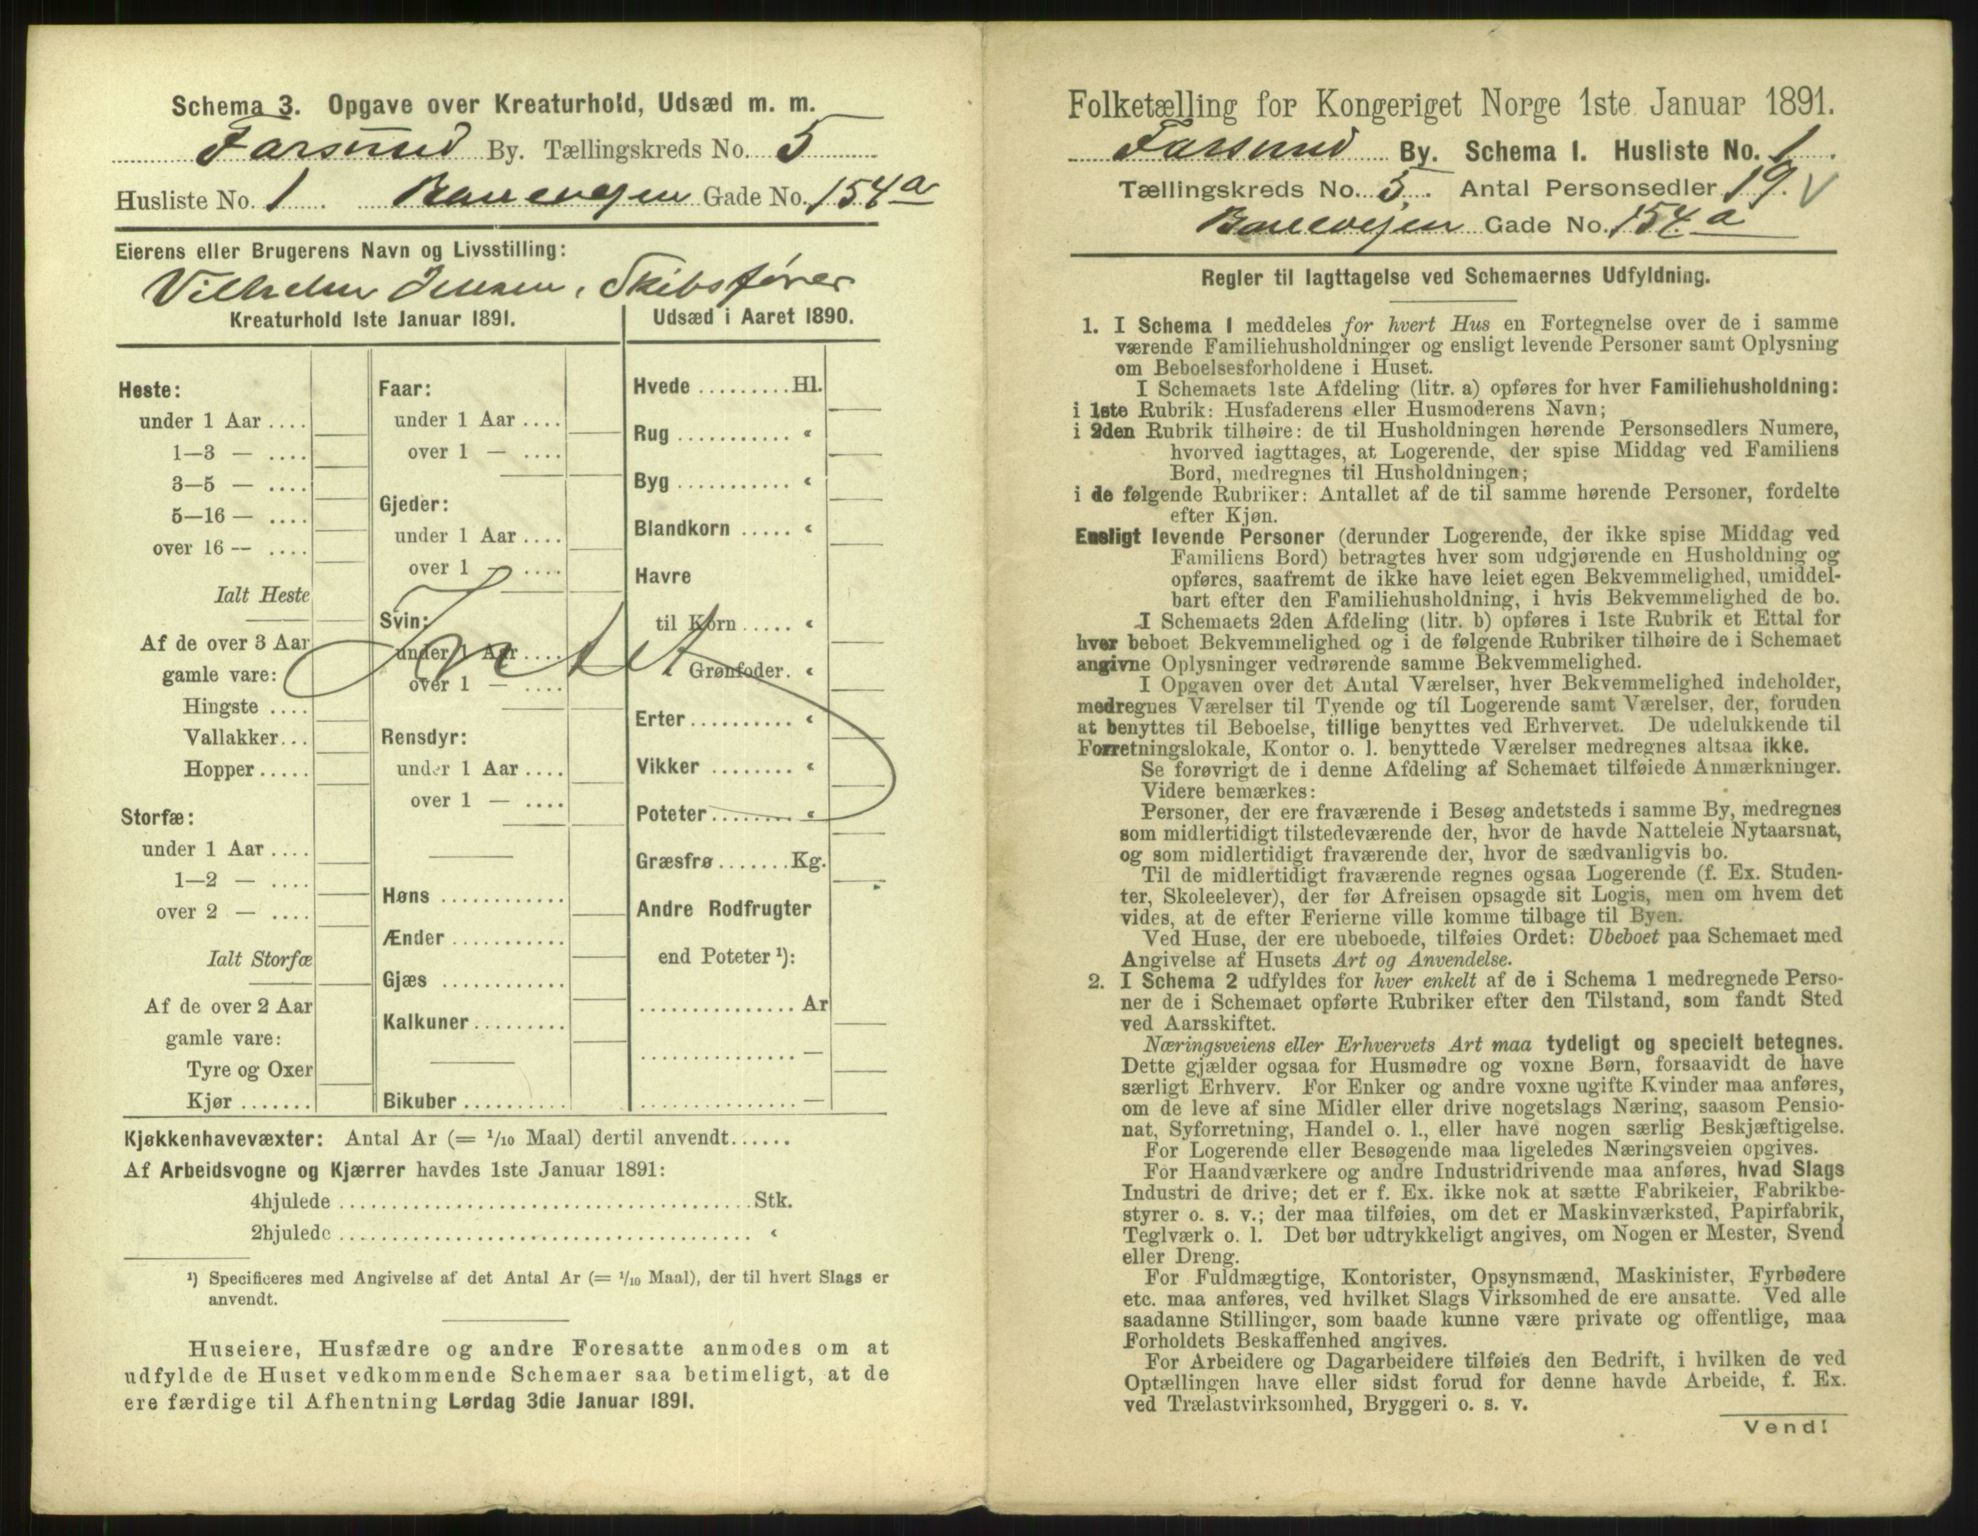 Schema 3. Opgave over Kreaturhold, Udsæd m. m.
Farsund By. Tællingskreds No. 5
Husliste No. 1 Banevejen Gade No. 154 a
Eierens eller Brugerens Navn og Livsstilling:
Vilhelm Jensen, Skibsfører
Kreaturhold 1ste Januar 1891.
Heste:
under 1 Aar ....
1—3 — ....
3—5 — ....
5—16 — ....
over 16 — ....
Ialt Heste
Af de over 3 Aar
gamle vare:
Hingste ....
Vallakker...
Hopper.....
Storfæ:
under 1 Aar ....
1—2 — ....
over 2 — ....
Ialt Storfæ
Af de over 2 Aar
gamle vare:
Tyre og Oxer
Kjør.......
Faar:
under 1 Aar ....
over 1 — ....
Gjeder:
under 1 Aar ....
over 1 — ....
Svin:
under 1 Aar ....
over 1 — ....
Intet
Rensdyr:
under 1 Aar ....
over 1 — ....
Høns ............
Ænder...........
Gjæs ............
Kalkuner.........
Bikuber..........
Udsæd i Aaret 1890.
Hvede .........Hl.
Rug ........... “
Byg ........... “
Blandkorn ..... “
Havre
til Korn ..... “
Grønfoder. “
Erter.......... “
Vikker ........ “
Poteter........ “
Græsfrø.......Kg.
Andre Rodfrugter
end Poteter ¹):
...............Ar
...............—
...............—
Kjøkkenhavevæxter: Antal Ar (= 1/10 Maal) dertil anvendt......
Af Arbeidsvogne og Kjærrer havdes 1ste Januar 1891:
4hjulede ......................................Stk.
2hjulede ...................................... “
¹) Specificeres med Angivelse af det Antal Ar (= 1/10 Maal), der til hvert Slags er
anvendt.
Huseiere, Husfædre og andre Foresatte anmodes om at
udfylde de Huset vedkommende Schemaer saa betimeligt, at de
ere færdige til Afhentning Lørdag 3die Januar 1891.
Folketælling for Kongeriget Norge 1ste Januar 1891.
Farsund By. Schema I. Husliste No. 1
Tællingskreds No. 5. Antal Personsedler 19.
Banevejen Gade No. 154. a
Regler til Iagttagelse ved Schemaernes Udfyldning.
1. I Schema 1 meddeles for hvert Hus en Fortegnelse over de i samme
værende Familiehusholdninger og ensligt levende Personer samt Oplysning
om Beboelsesforholdene i Huset.
I Schemaets 1ste Afdeling (litr. a) opføres for hver Familiehusholdning:
i 1ste Rubrik: Husfaderens eller Husmoderens Navn;
i 2den Rubrik tilhøire: de til Husholdningen hørende Personsedlers Numere,
hvorved iagttages, at Logerende, der spise Middag ved Familiens
Bord, medregnes til Husholdningen;
i de følgende Rubriker: Antallet af de til samme hørende Personer, fordelte
efter Kjøn.
Ensligt levende Personer (derunder Logerende, der ikke spise Middag ved
Familiens Bord) betragtes hver som udgjørende en Husholdning og
opføres, saafremt de ikke have leiet egen Bekvemmelighed, umiddel-
bart efter den Familiehusholdning, i hvis Bekvemmelighed de bo.
I Schemaets 2den Afdeling (litr. b) opføres i 1ste Rubrik et Ettal for
hver beboet Bekvemmelighed og i de følgende Rubriker tilhøire de i Schemaet
angivne Oplysninger vedrørende samme Bekvemmelighed.
I Opgaven over det Antal Værelser, hver Bekvemmelighed indeholder,
medregnes Værelser til Tyende og til Logerende samt Værelser, der, foruden
at benyttes til Beboelse, tillige benyttes ved Erhvervet. De udelukkende til
Forretningslokale, Kontor o. l. benyttede Værelser medregnes altsaa ikke.
Se forøvrigt de i denne Afdeling af Schemaet tilføiede Anmærkninger.
Videre bemærkes:
Personer, der ere fraværende i Besøg andetsteds i samme By, medregnes
som midlertidigt tilstedeværende der, hvor de havde Natteleie Nytaarsnat,
og som midlertidigt fraværende der, hvor de sædvanligvis bo.
Til de midlertidigt fraværende regnes ogsaa Logerende (f. Ex. Studen-
ter, Skoleelever), der før Afreisen opsagde sit Logis, men om hvem det
vides, at de efter Ferierne ville komme tilbage til Byen.
Ved Huse, der ere ubeboede, tilføies Ordet: Ubeboet paa Schemaet med
Angivelse af Husets Art og Anvendelse.
2. I Schema 2 udfyldes for hver enkelt af de i Schema 1 medregnede Perso-
ner de i Schemaet opførte Rubriker efter den Tilstand, som fandt Sted
ved Aarsskiftet.
Næringsveiens eller Erhvervets Art maa tydeligt og specielt betegnes.
Dette gjælder ogsaa for Husmødre og voxne Børn, forsaavidt de have
særligt Erhverv. For Enker og andre voxne ugifte Kvinder maa anføres,
om de leve af sine Midler eller drive nogetslags Næring, saasom Pensio-
nat, Syforretning, Handel o. l., eller have nogen særlig Beskjæftigelse.
For Logerende eller Besøgende maa ligeledes Næringsveien opgives.
For Haandværkere og andre Industridrivende maa anføres, hvad Slags
Industri de drive; det er f. Ex. ikke nok at sætte Fabrikeier, Fabrikbe-
styrer o. s. v.; der maa tilføies, om det er Maskinværksted, Papirfabrik,
Teglværk o. l. Det bør udtrykkeligt angives, om Nogen er Mester, Svend
eller Dreng.
For Fuldmægtige, Kontorister, Opsynsmænd, Maskinister, Fyrbødere
etc. maa anføres, ved hvilket Slags Virksomhed de ere ansatte. Ved alle
saadanne Stillinger, som baade kunne være private og offentlige, maa
Forholdets Beskaffenhed angives.
For Arbeidere og Dagarbeidere tilføies den Bedrift, i hvilken de ved
Optællingen have eller sidst forud for denne havde Arbeide, f. Ex.
ved Trælastvirksomhed, Bryggeri o. s. v.
Vend!